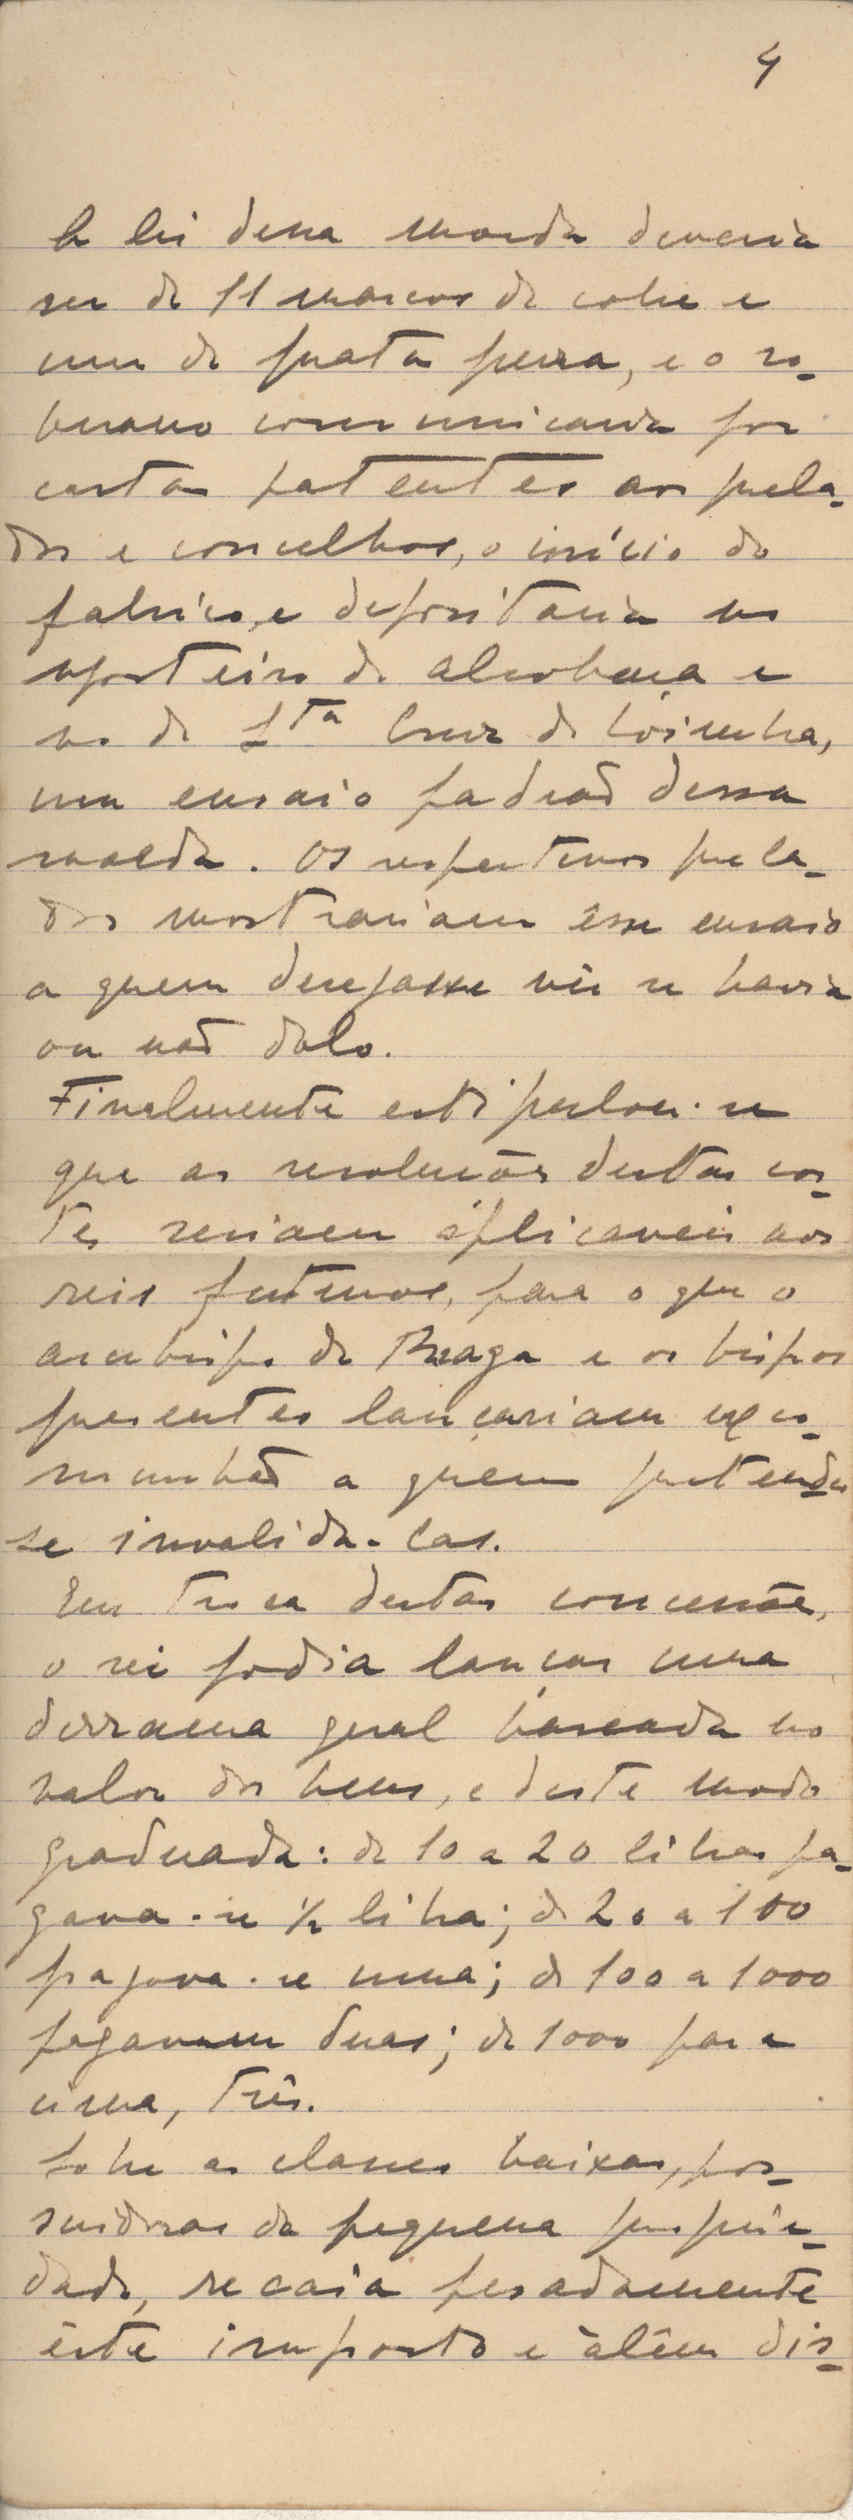 4
A lei dessa moeda deveria
ser de 11 marcos de cobre e
um de prata pura, e o so-
berano comunicaria por
cartas patentes aos prela-
dos e concelhos, o início do
fabrico, e depositaria no
mosteiro de Alcobaça e
no de Sta Cruz de Coimbra,
um ensaio padrão dessa
moeda. Os respectivos prela-
dos mostrariam êsse ensaio
a quem desejasse vêr se havia
ou não dolo.
Finalmente estipulou-se
que as resoluções destas cor-
tes seriam aplicaveis aos
reis futuros, para o que o
arcebispo de Braga e os bispos
presentes lançariam exco-
munhão a quem pretendes
se invalida-las.
Em troca destas concessões,
o rei podia lançar uma
derrama geral baseada no
valor dos bens, e deste modo
graduada: de 10 a 20 libras pa-
gava-se ½ libra; de 20 a 100
pagava-se uma; de 100 a 1000
pagavam duas; de 1000 para
cima, três.
Sobre as classes baixas, pos-
suidoras da pequena proprie-
dade, recaía pesadamente
êste imposto e àlêm dis-